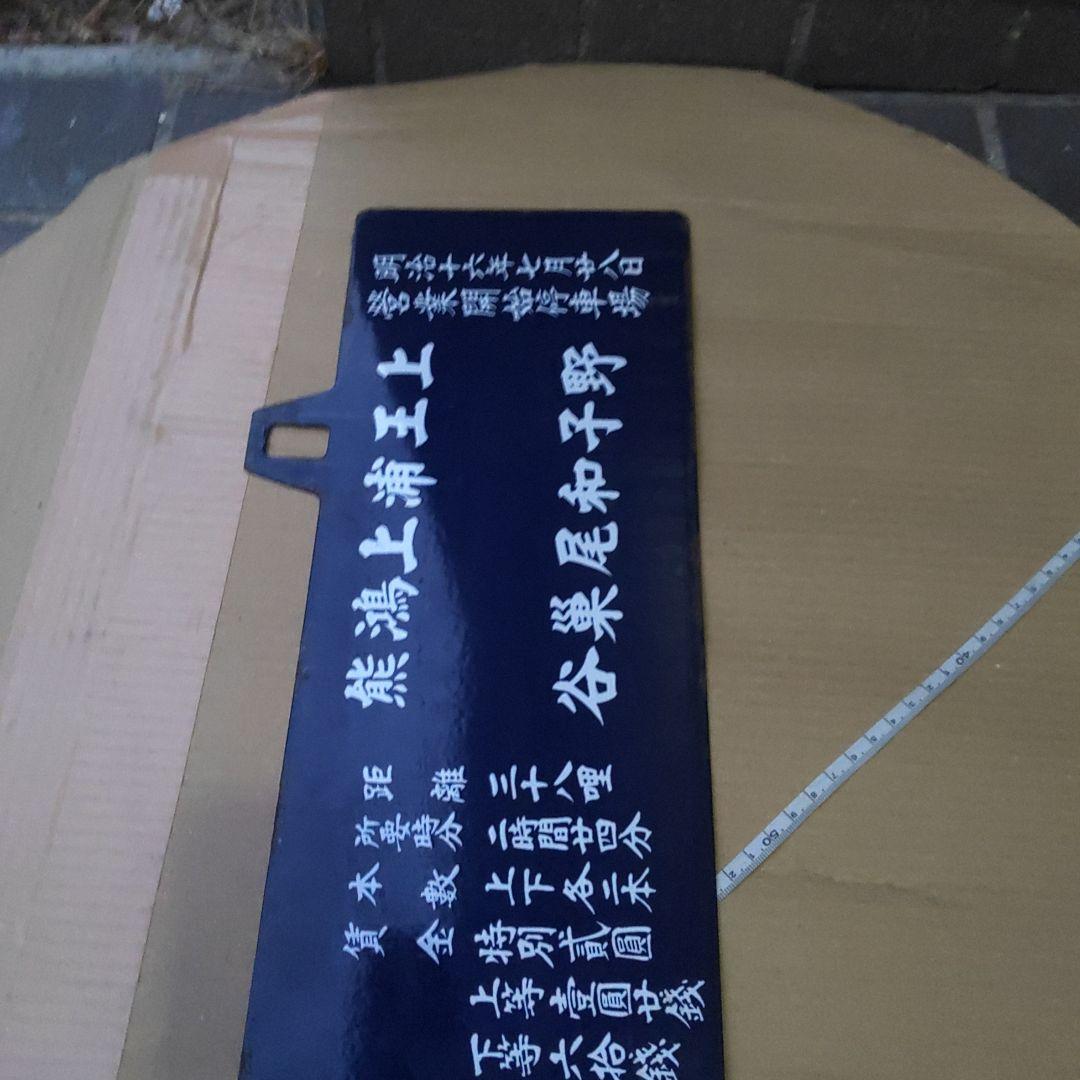 明治十六年七月廿八日
營業開始停車場
上野
王子
浦和
上尾
鴻巣
熊谷
距離 三十八哩
所要時分 二時間廿四分
本數 上下各二本
賃金 特別貳圓
上等壹圓廿錢
下等六拾錢
40
50